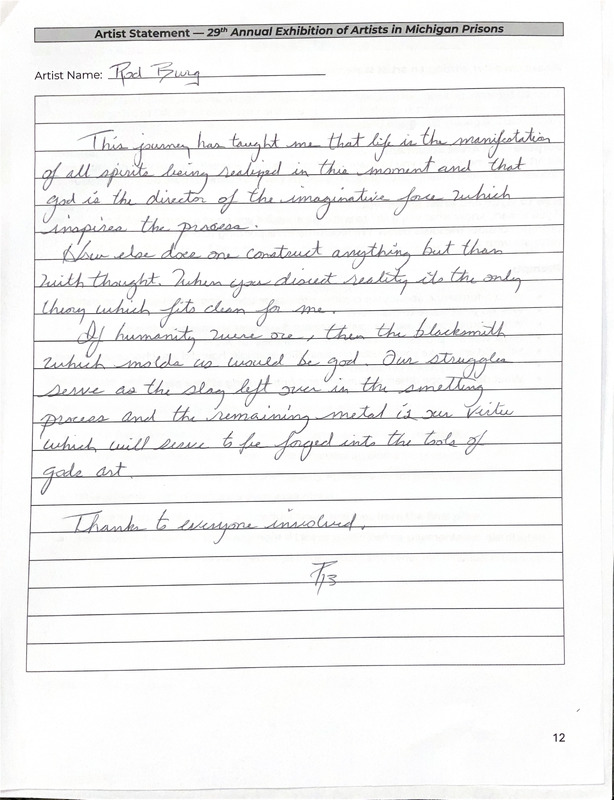 Artist Statement — 29th Annual Exhibition of Artists in Michigan Prisons
Artist Name: Rod Burg
This journey has taught me that life is the manifestation
of all spirits being realized in this moment and that
god is the director of the imaginative force which
inspires the process.
How else does one construct anything but than
with thought. When you disect reality its the only
theory which fits clean for me.
If humanity were ore, then the blacksmith
which molds us would be god. Our struggles
serve as the slag left over in the smelting
process and the remaining metal is our virtue
which will serve to be forged into the tools of
gods art.
Thanks to everyone involved.
RB
12